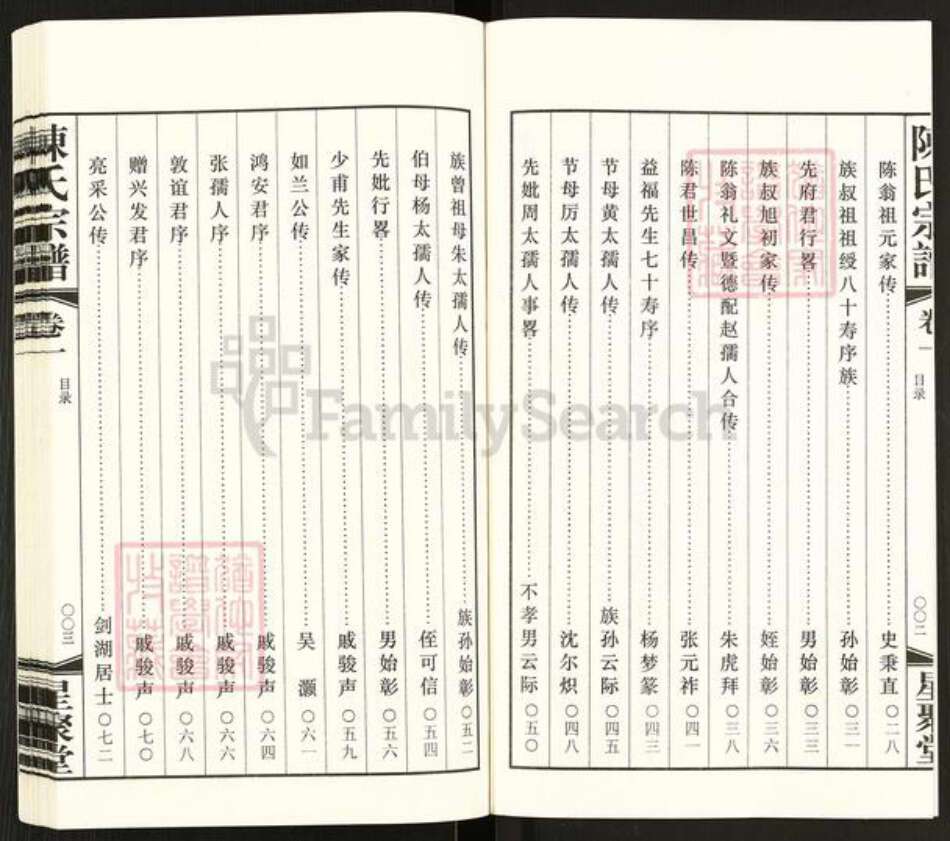 陈氏宗谱
卷一
目录
〇〇二
星聚堂
陈翁祖元家传 史秉直 〇二八
族叔祖祖绶八十寿序族 孙始彰 〇三一
先府君行畧 男始彰 〇三三
族叔旭初家传 姪始彰 〇三六
陈翁礼文暨德配赵孺人合传 朱虎拜 〇三八
陈君世昌传 张元祚 〇四一
益福先生七十寿序 杨梦篆 〇四三
节母黄太孺人传 族孙云际 〇四五
节母厉太孺人传 沈尔炽 〇四八
先妣周太孺人事畧 不孝男云际 〇五〇
族曾祖母朱太孺人传 族孙始彰 〇五二
伯母杨太孺人传 侄可信 〇五四
先妣行畧 男始彰 〇五六
少甫先生家传 戚骏声 〇五九
如兰公传 吴灏 〇六一
鸿安君序 戚骏声 〇六四
张孺人序 戚骏声 〇六六
敦谊君序 戚骏声 〇六八
赠兴发君序 戚骏声 〇七〇
亮采公传 剑湖居士 〇七二
陳氏宗譜
卷一
目录
〇〇三
星聚堂
FamilySearch